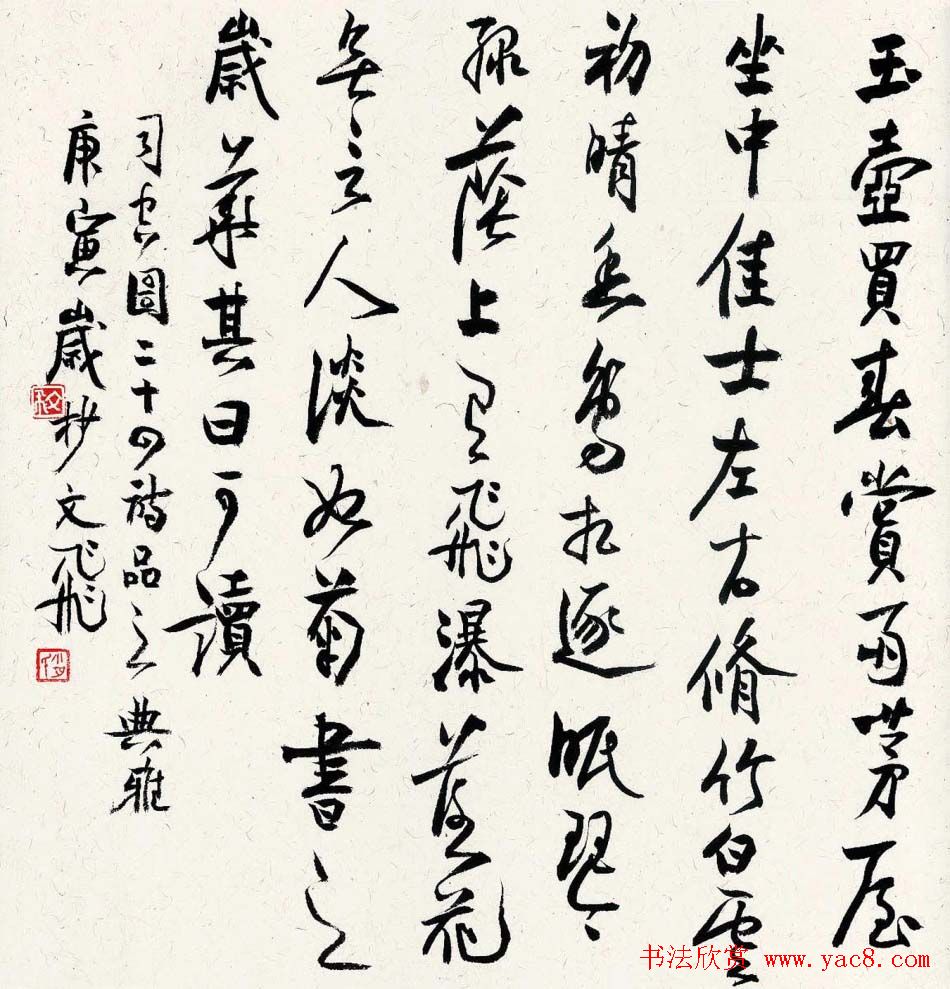 玉壺買春賞雨茅屋
坐中佳士左右脩竹白雲
初晴幽鳥相逐眠琴
綠蔭上有飛瀑落花
無言人淡如菊書之
歲華其曰可讀
司空圖二十四詩品之典雅
庚寅歲杪文飛
书法欣赏 www.yac8.com